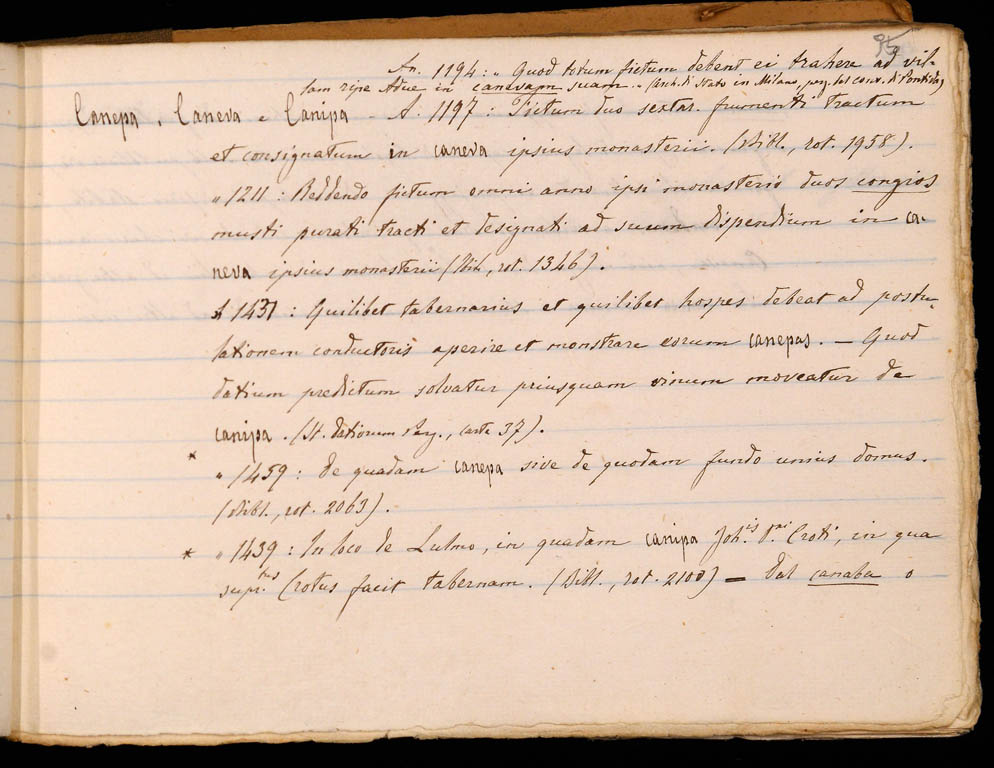 95
An. 1194: „ Quod totum fictum debent ei trahere ad vil-
lam ripe Adue in canevam suam „ (Arch. di Stato in Milano, perg. del conv. di Pontida)
Canepa, Caneva e Canipa - A. 1197: Fictum duo sextar. frumenti tractum
et consignatum in caneva ipsius monasterii. (Bibl., rot. 1958).
„ 1211: Reddendo fictum omni anno ipsi monasterio duos congios
musti purati tracti et designati ad suum dispendium in ca-
neva ipsius monasterii (Bibl., rot. 1346).
A 1431: Quilibet tabernarius et quilibet hospes debeat ad postu-
lationem conductoris aperire et monstrare eorum canepas. — Quod
datium predictum solvatur priusquam vinum moveatur de
canipa. (St. datiorum Berg., carte 37).
* „ 1459: de quadam canepa sive de quodam fundo unius domus.
(Bibl., rot. 2063).
* „ 1439: In loco de Lulmo, in quadam canipa Joh.is d.ni Croti, in qua
supr.tus Crotus facit tabernam. (Bibl., rot. 2100) — Dal canaba o